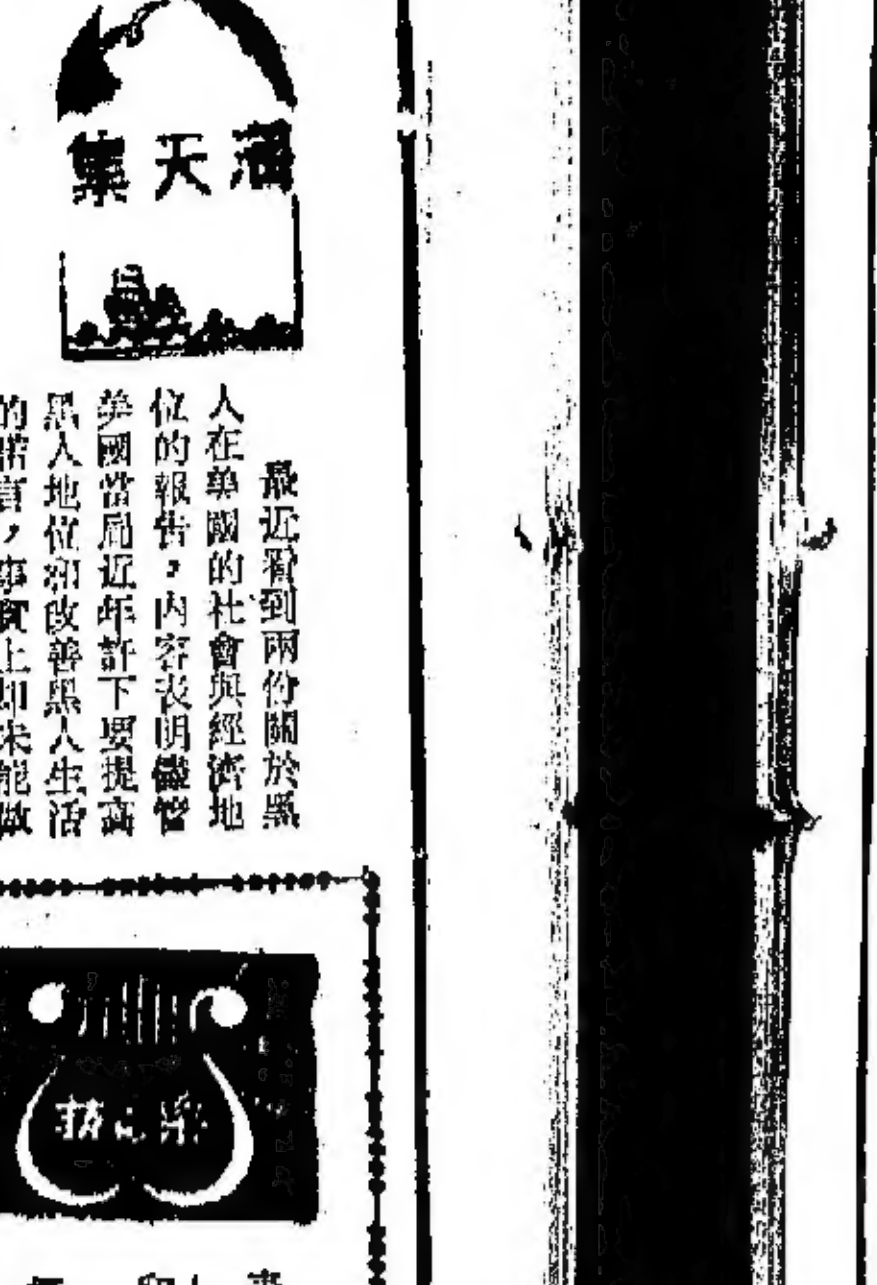 滿天集
最近看到兩份關於黑
人在美國的社會與經濟地
位的報告，內容表明儘管
美國當局近年許下要提高
黑人地位和改善黑人生活
的諾言，事實上却未能做
樂之坊